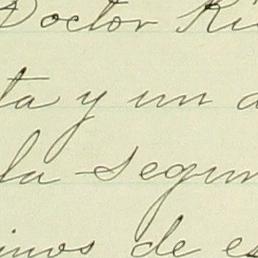 Doctor Ri
ta y un a
la segun
inos de es